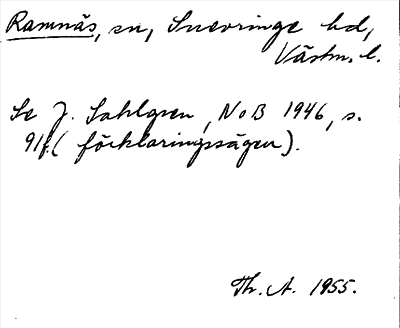 Ramnäs, sn, Snevringe hd,
Västm. l.
Se J. Sahlgren, NoB 1946, s.
91f. (förklaringssägen).
Th. A. 1955.